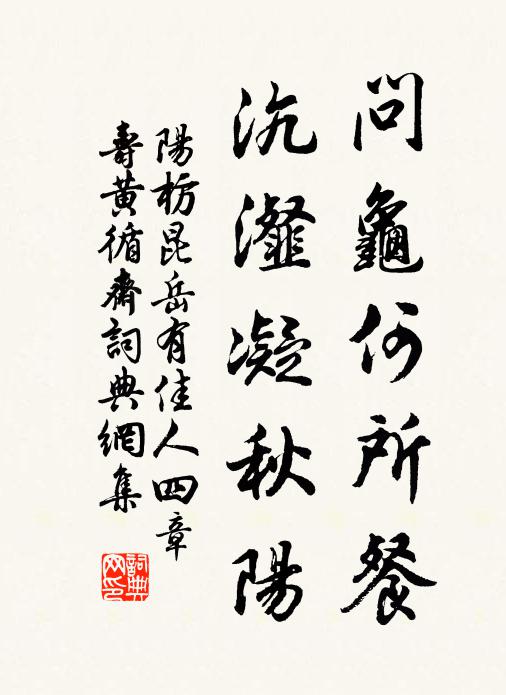 問龜何所餐
沆瀣凝秋陽
陽枋昆岳有佳人四章
壽黃循齋詞典網集
詞典
网印